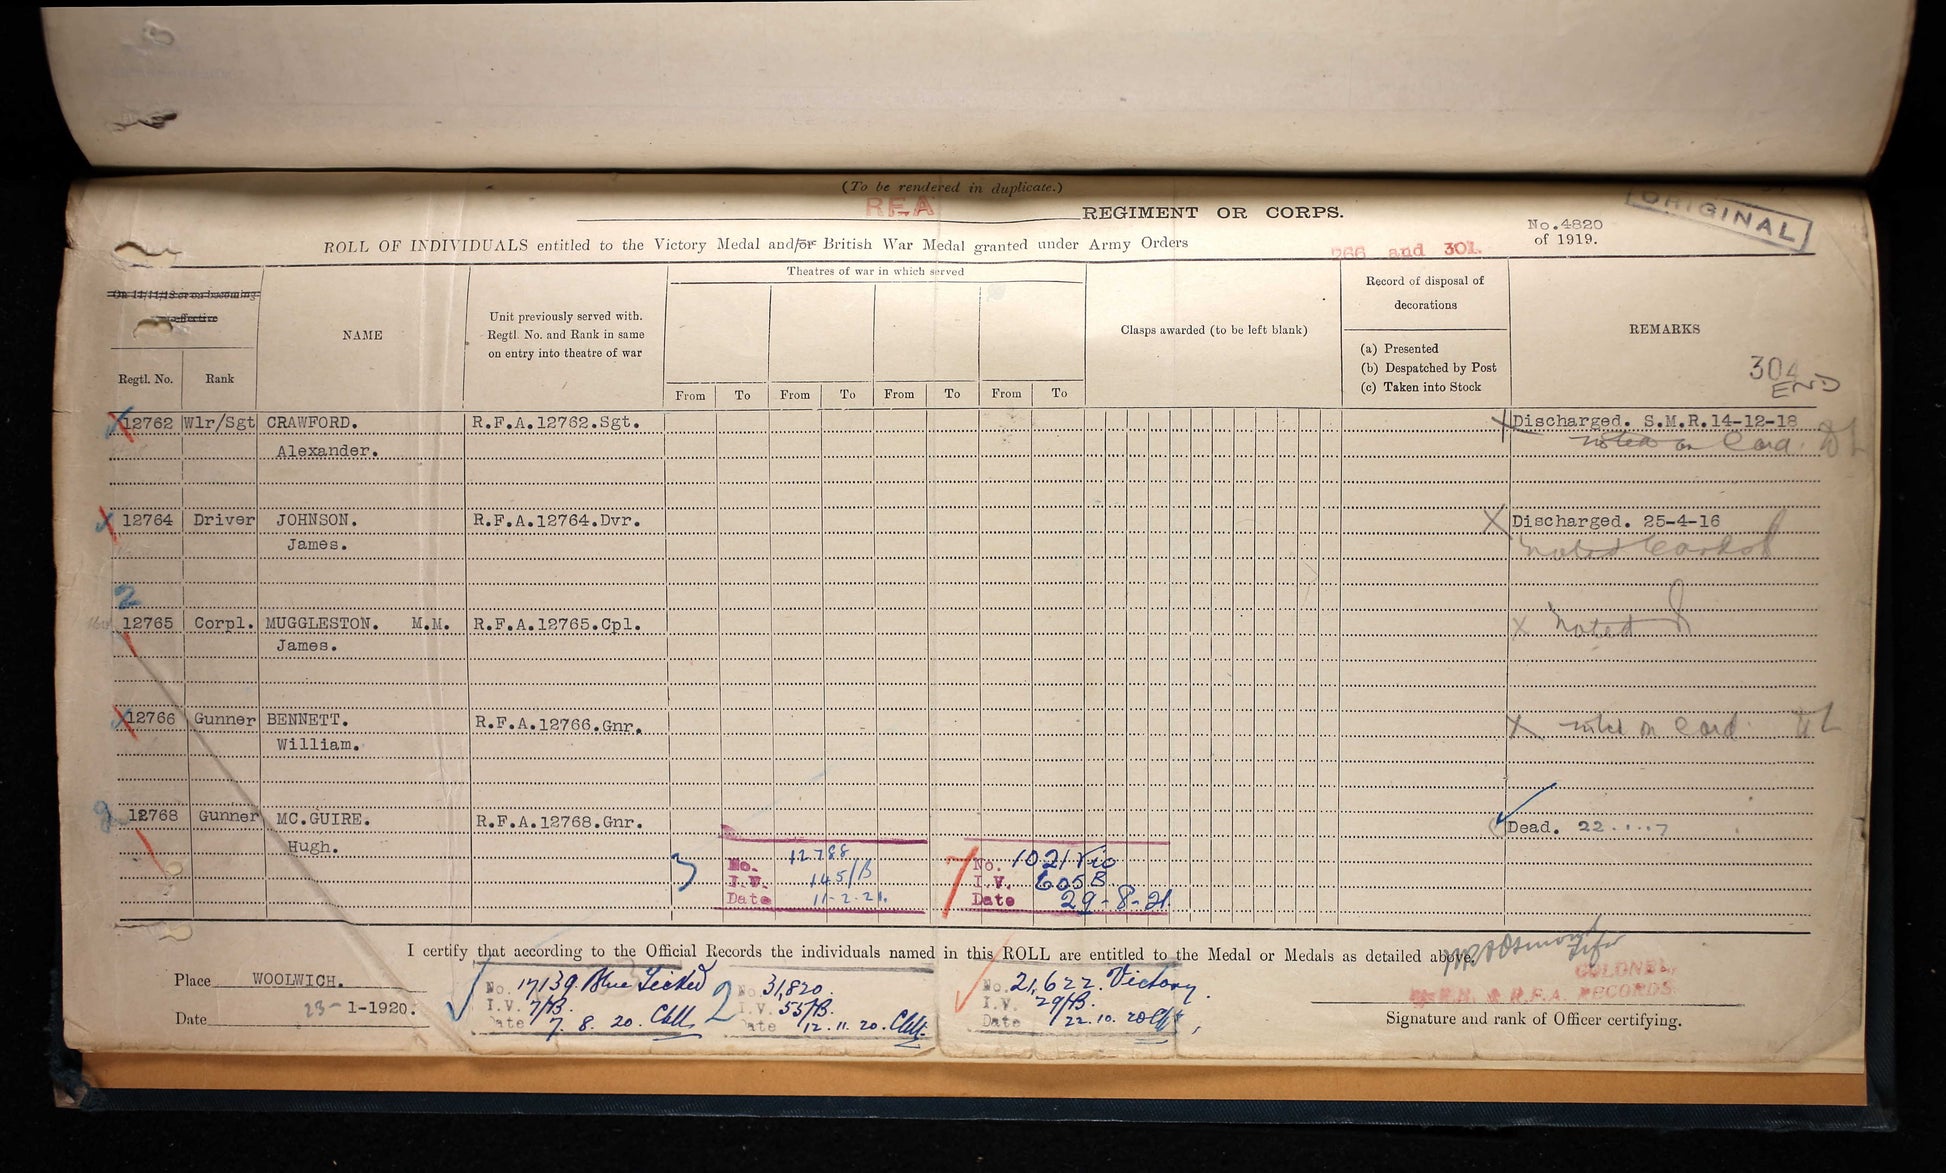 (To be rendered in duplicate.)
RFA REGIMENT OR CORPS.
ORIGINAL
No.4820
of 1919.
ROLL OF INDIVIDUALS entitled to the Victory Medal and/or British War Medal granted under Army Orders
266 and 301.
On 11/11/18 or on becoming
effective
Regtl. No.
Rank
NAME
Unit previously served with.
Regtl. No. and Rank in same
on entry into theatre of war
Theatres of war in which served
From To From To From To From To
Clasps awarded (to be left blank)
Record of disposal of
decorations
(a) Presented
(b) Despatched by Post
(c) Taken into Stock
REMARKS
304
END
12762 Wlr/Sgt CRAWFORD. R.F.A.12762.Sgt. Discharged. S.M.R.14-12-18
Alexander. noted on Card.
12764 Driver JOHNSON. R.F.A.12764.Dvr. Discharged. 25-4-16
James. noted
2
12765 Corpl. MUGGLESTON. M.M. R.F.A.12765.Cpl. noted
James.
12766 Gunner BENNETT. R.F.A.12766.Gnr. noted on Card
William.
12768 Gunner MC.GUIRE. R.F.A.12768.Gnr. Dead.
Hugh.
3
No. 12788
I.V. 145/B
Date 11-2-21.
No. 1021 Vic
I.V. 605 B
Date 29-8-21
I certify that according to the Official Records the individuals named in this ROLL are entitled to the Medal or Medals as detailed above.
Place WOOLWICH.
Date 23-1-1920.
No. 17139 Blue Ticked
I.V. 7/B.
Date 7. 8. 20.
2
No 31,820.
I.V. 55/B.
Date 12. 11. 20.
No. 21,622. Victory.
I.V. 29/B.
Date 22. 10. 20
COLONEL,
R.H. & R.F.A. RECORDS.
Signature and rank of Officer certifying.